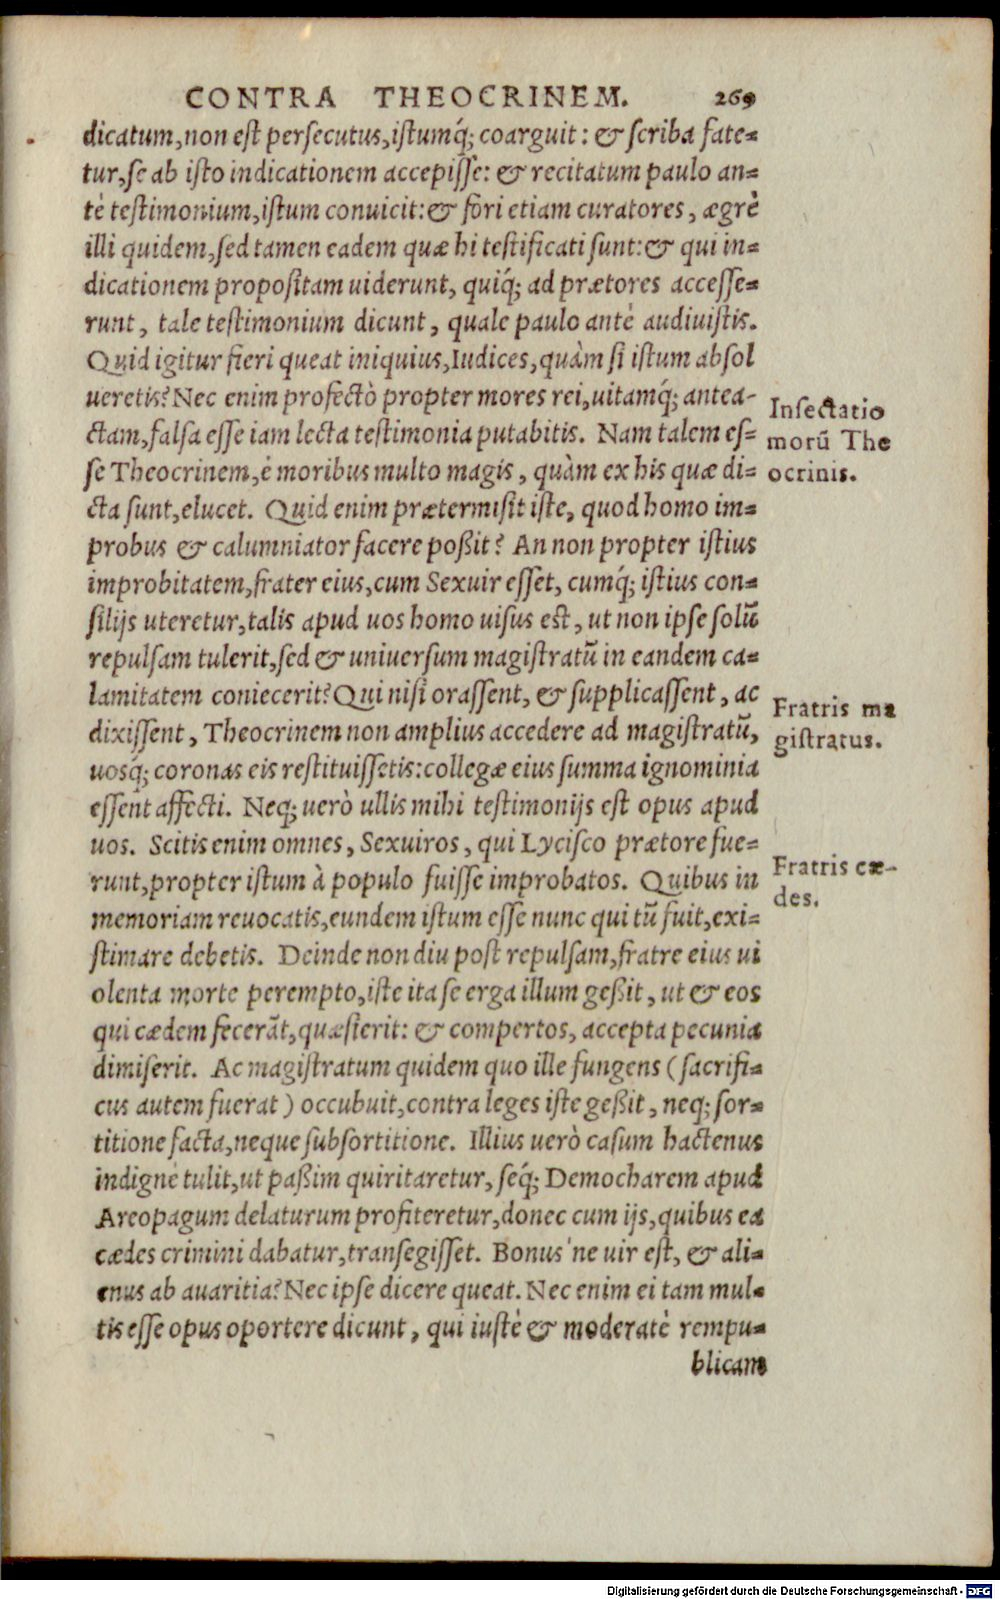 CONTRA THEOCRINEM. 269
dicatum, non est persecutus, istumq́; coarguit: & scriba fate=
tur, se ab isto indicationem accepisse: & recitatum paulo an=
tè testimonium, istum conuicit: & fori etiam curatores, ægrè
illi quidem, sed tamen eadem quæ hi testificati sunt: & qui in=
dicationem propositam uiderunt, quiq́; ad prætores accesse=
runt, tale testimonium dicunt, quale paulo antè audiuistis.
Quid igitur fieri queat iniquius, Iudices, quàm si istum absol
ueretis? Nec enim profectò propter mores rei, uitamq́; antea-
ctam, falsa esse iam lecta testimonia putabitis. Nam talem es=
se Theocrinem, è moribus multo magis, quàm ex his quæ di=
cta sunt, elucet. Quid enim prætermisit iste, quod homo im=
probus & calumniator facere poßit? An non propter istius
improbitatem, frater eius, cum Sexuir esset, cumq́; istius con=
silijs uteretur, talis apud uos homo uisus est, ut non ipse solũ
repulsam tulerit, sed & uniuersum magistratũ in eandem ca=
lamitatem coniecerit? Qui nisi orassent, & supplicassent, ac
dixissent, Theocrinem non amplius accedere ad magistratũ,
uosq́; coronas eis restituissetis: collegæ eius summa ignominia
essent affecti. Neq; uerò ullis mihi testimonijs est opus apud
uos. Scitis enim omnes, Sexuiros, qui Lycisco prætore fue=
runt, propter istum à populo fuisse improbatos. Quibus in
memoriam reuocatis, eundem istum esse nunc qui tũ fuit, exi=
stimare debetis. Deinde non diu post repulsam, fratre eius ui
olenta morte perempto, iste ita se erga illum geßit, ut & eos
qui cædem fecerãt, quæsierit: & compertos, accepta pecunia
dimiserit. Ac magistratum quidem quo ille fungens (sacrifi=
cus autem fuerat) occubuit, contra leges iste geßit, neq; sor=
titione facta, neque subsortitione. Illius uerò casum hactenus
indignè tulit, ut paßim quiritaretur, seq́; Democharem apud
Areopagum delaturum profiteretur, donec cum ijs, quibus ea
cædes crimini dabatur, transegisset. Bonus'ne uir est, & ali=
enus ab auaritia? Nec ipse dicere queat. Nec enim ei tam mul=
tis esse opus oportere dicunt, qui iustè & moderatè rempu=
blicam
Insectatio
morũ The
ocrinis.
Fratris ma
gistratus.
Fratris cæ-
des.
Digitalisierung gefördert durch die Deutsche Forschungsgemeinschaft - DFG